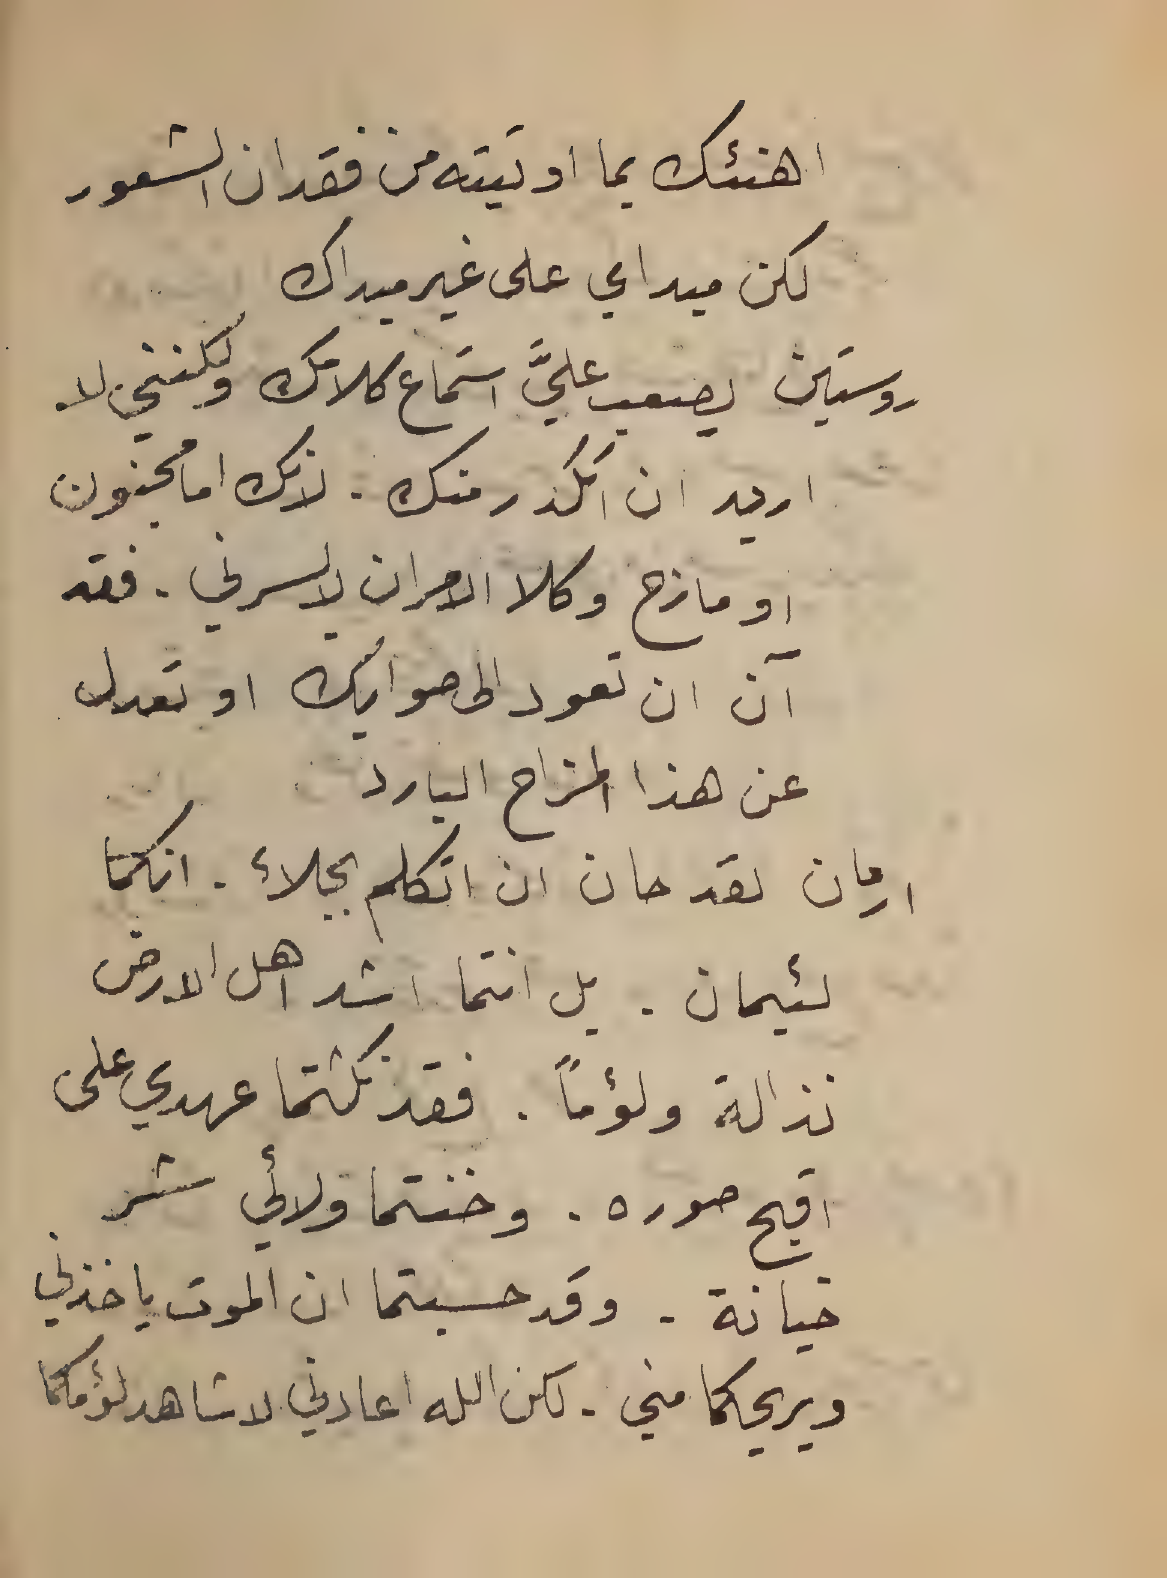 اهنئك بما اوتيته من فقدان الشعور
لكن مبداي على غير مبداك
روستين يصعب عليَّ استماع كلامك ولكنني لا
اريد ان اتكدر منك . لانك اما مجنون
او مازح وكلا الامران لا يسرني . فقد
آن ان تعود الى صوابك او تعدل
عن هذا المزاح البارد
ارمان لقد حان ان اتكلم بجلاء . انكما
لئيمان . بل انتما اشد اهل الارض
نذالة ولؤماً . فقد نكثتما عهدي على
اقبح صوره . وخنتما ولائي شر
خيانة . وقد حسبتما ان الموت ياخذني
ويريحكما مني . لكن الله اعادني لاشاهد لؤمكما